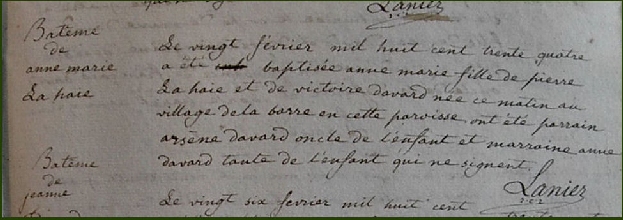 Laniez
Batême
de
anne marie
La haie
Le vingt février mil huit cent trente quatre
a été baptisée anne marie fille de pierre
La haie et de victoire davard née ce matin au
village de la barre en cette paroisse ont été parrain
arsène davard oncle de l'enfant et marraine anne
davard tante de l'enfant qui ne signent.
Laniez
Batême
de
jeanne
Le vingt six fevrier mil huit cent